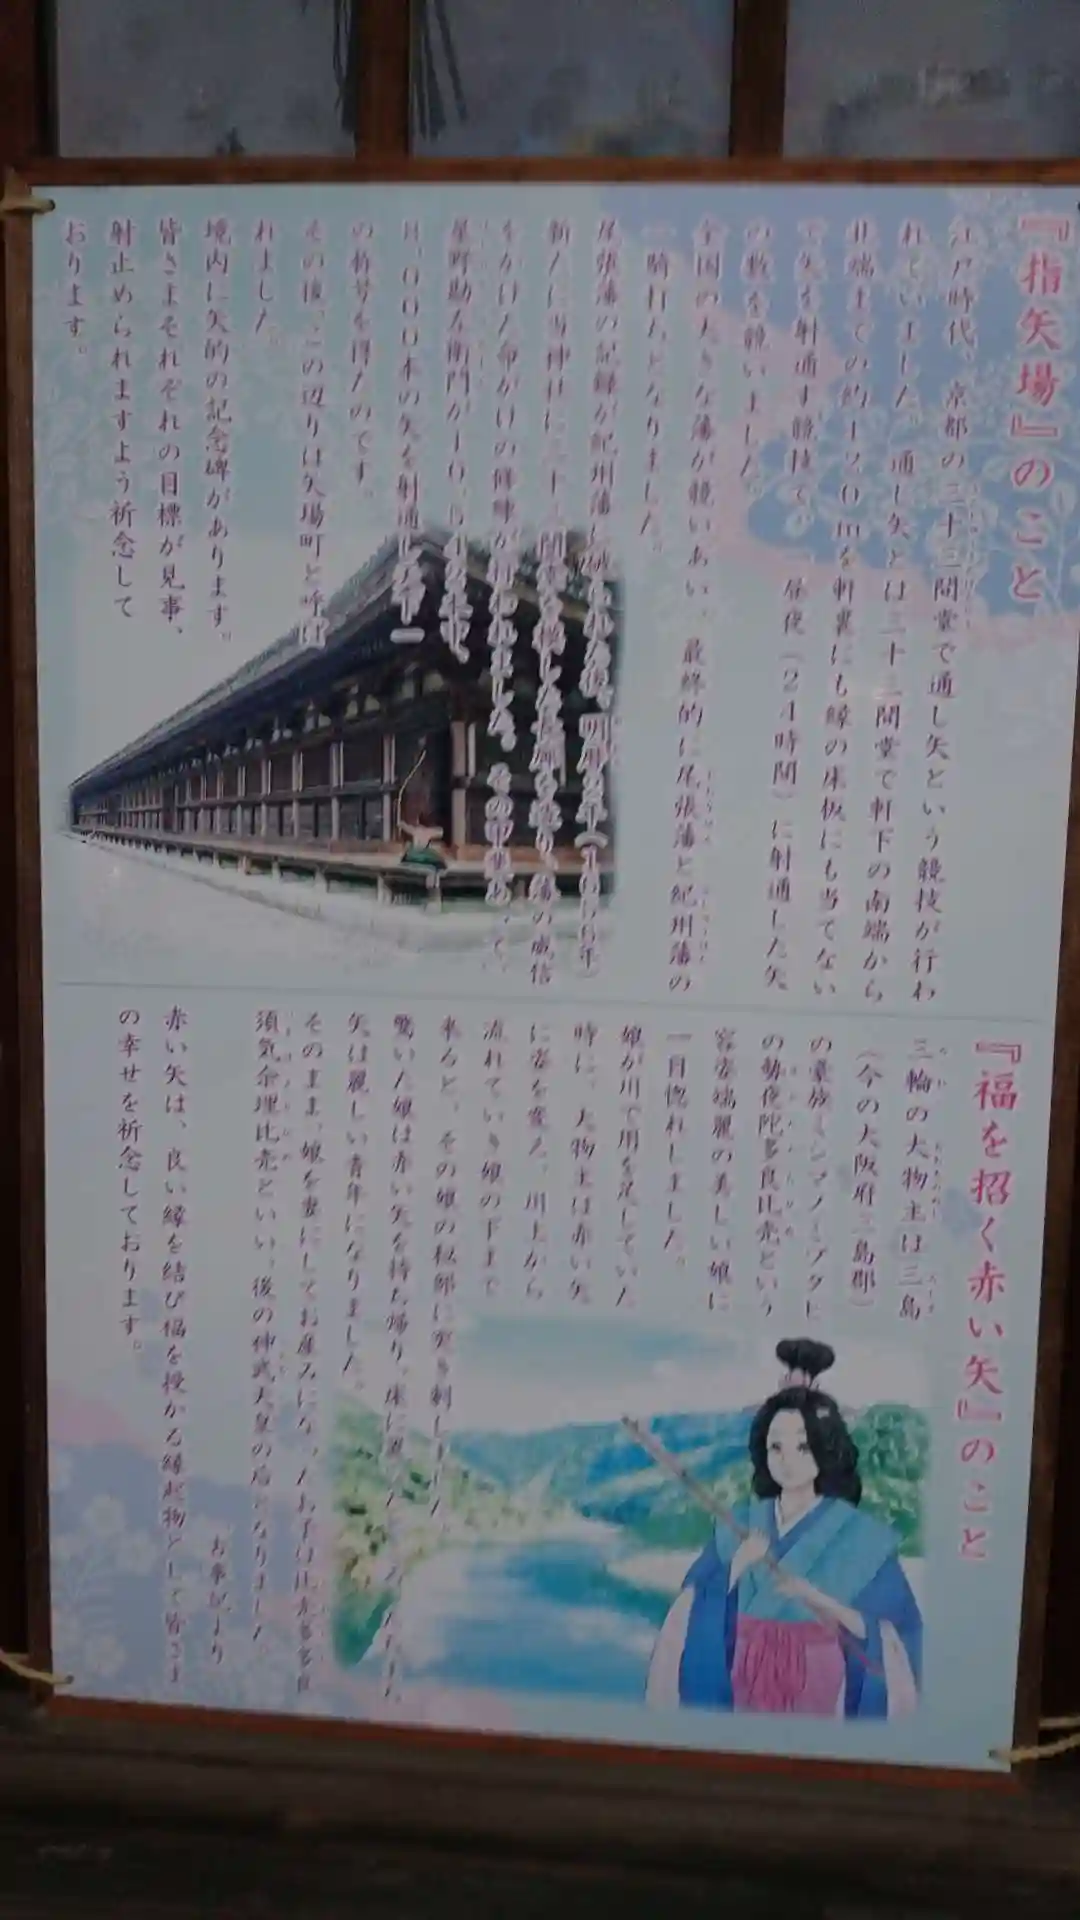 『指矢場』のこと
江戸時代、京都の三十三間堂で通し矢という競技が行わ
れていました。通し矢とは三十三間堂で軒下の南端から
北端までの約120mを軒裏にも縁の床板にも当てない
で矢を射通す競技で、一昼夜（24時間）に射通した矢
の数を競いました。
全国の大きな藩が競いあい、最終的に尾張藩と紀州藩の
一騎打ちとなりました。
尾張藩の記録が紀州藩に破られた後、明暦2年（1656年）
新たに当神社に三十三間堂を模した長廊を造り、藩の威信
をかけた命がけの修練が行われました。その甲斐あって、
星野勘左衛門が10,542本中、
8,000本の矢を射通し天下一
の称号を得たのです。
その後、この辺りは矢場町と呼ば
れました。
境内に矢的の記念碑があります。
皆さまそれぞれの目標が見事、
射止められますよう祈念して
おります。
『福を招く赤い矢』のこと
三輪の大物主は三島
（今の大阪府三島郡）
の豪族ミシマノミゾクヒ
の勢夜陀多良比売という
容姿端麗の美しい娘に
一目惚れしました。
娘が川で用を足していた
時に、大物主は赤い矢
に姿を変え、川上から
流れていき娘の下まで
来ると、その娘の秘部に突き刺しました。
驚いた娘は赤い矢を持ち帰り、床に置いた
矢は麗しい青年になりました。
そのまま、娘を妻にしてお産みになったお子は比売多多良
須気余理比売といい、後の神武天皇の后となりました。
古事記より
赤い矢は、良い縁を結び福を授かる縁起物として皆さま
の幸せを祈念しております。